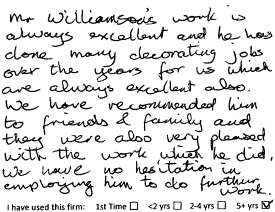 Mr Williamson's work is
always excellent and he has
done many decorating jobs
over the years for us which
are always excellent also.
We have recommended him
to friends & family and
they were also very pleased
with the work which he did.
We have no hesitation in
employing him to do further
work.
I have used this firm: 1st Time ☐ <2 yrs ☐ 2-4 yrs ☐ 5+ yrs ☑